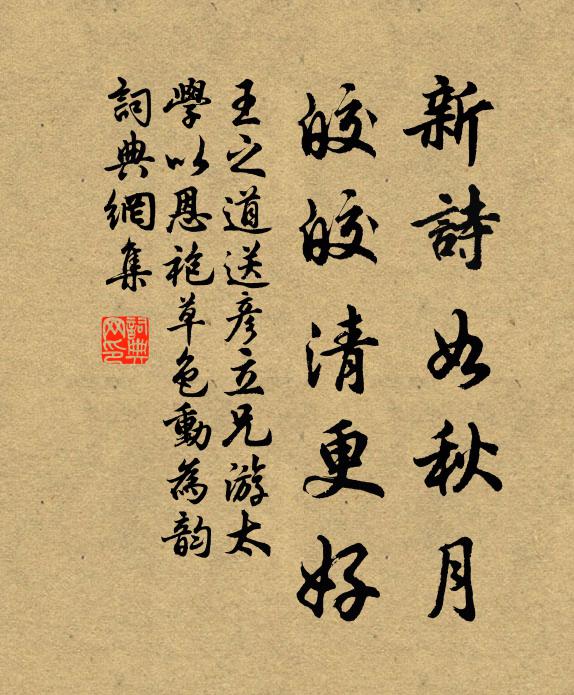 新詩如秋月
皎皎清更好
王之道送彦立兄游太
學以恩袍草色動為韵
詞典網集
詞典
网印